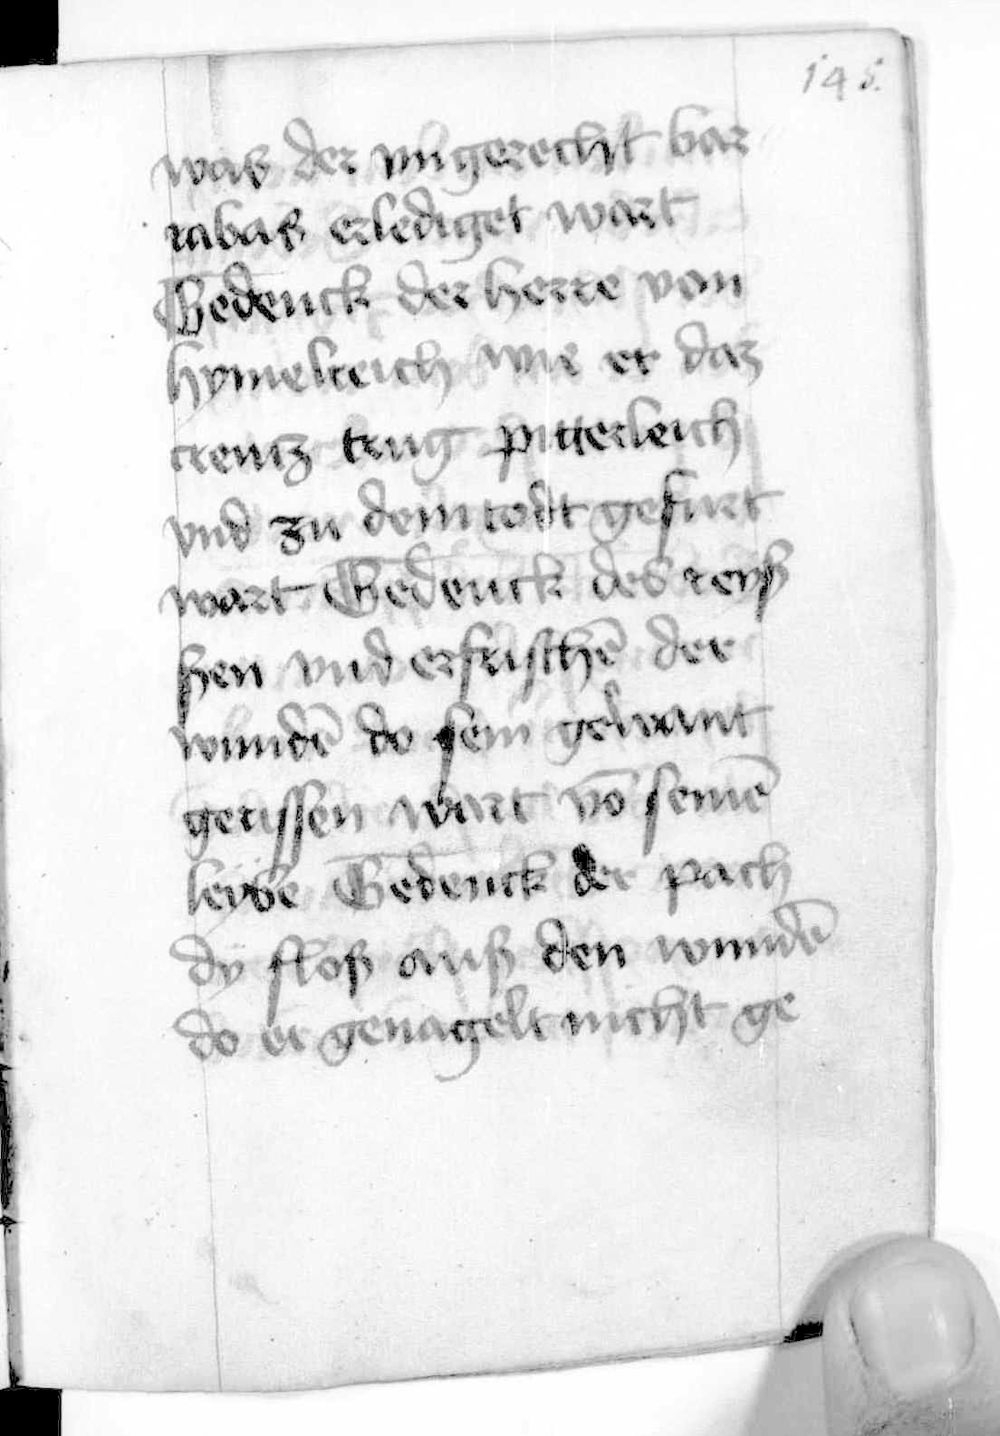 145.
was der vngerecht bar
rabas erlediget wart
Gedenck der herre von
hymelreich wie er daz
creutz trug pitterleich
vnd zu dem todt gefurt
wart Gedenck des reyß
ßen vnd erfrischē der
wundē do sein gewant
gerissen wart vō seinē
leybe Gedenck der pach
dy floß auß den wundē
do er genagelt nicht ge